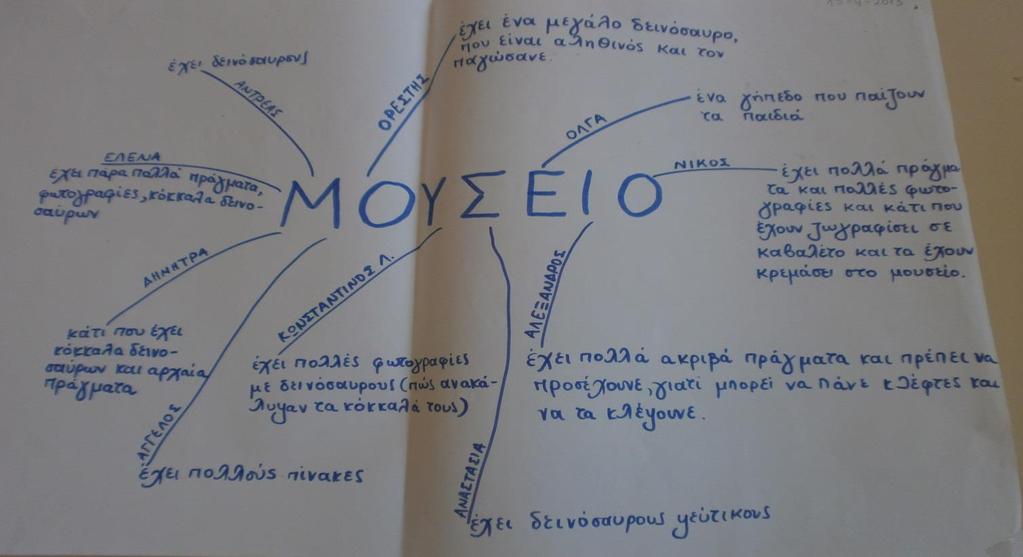 έχει ένα μεγάλο δεινόσαυρο,
που είναι αληθινός και τον
παγώσανε.
ΟΡΕΣΤΗΣ
έχει δεινόσαυρους
ΑΝΤΡΕΑΣ
ένα γήπεδο που παίζουν
τα παιδιά
ΟΛΓΑ
ΕΛΕΝΑ
έχει πάρα πολλά πράγματα,
φωτογραφίες, κόκκαλα δεινο-
σαύρων
ΝΙΚΟΣ
έχει πολλά πράγμα-
τα και πολλές φωτο-
γραφίες και κάτι που
έχουν ζωγραφίσει σε
καβαλέτο και τα έχουν
κρεμάσει στο μουσείο.
ΜΟΥΣΕΙΟ
ΔΗΜΗΤΡΑ
κάτι που έχει
κόκκαλα δεινο-
σαύρων και αρχαία
πράγματα
ΑΓΓΕΛΟΣ
έχει πολλούς πίνακες
ΚΩΝΣΤΑΝΤΙΝΟΣ Λ.
έχει πολλές φωτογραφίες
με δεινόσαυρους (πώς ανακά-
λυψαν τα κόκκαλά τους)
ΑΝΑΣΤΑΣΙΑ
έχει δεινόσαυρους ψεύτικους
ΑΛΕΞΑΝΔΡΟΣ
έχει πολλά ακριβά πράγματα και πρέπει να
προσέχουνε, γιατί μπορεί να πάνε κλέφτες και
να τα κλέψουνε.